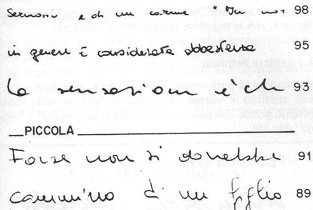 Sermoni e di un carme "In 98
in genere è considerata abbastanza 95
la sensazione è che 93
PICCOLA
Forse non si dovrebbe 91
cammino di un figlio 89